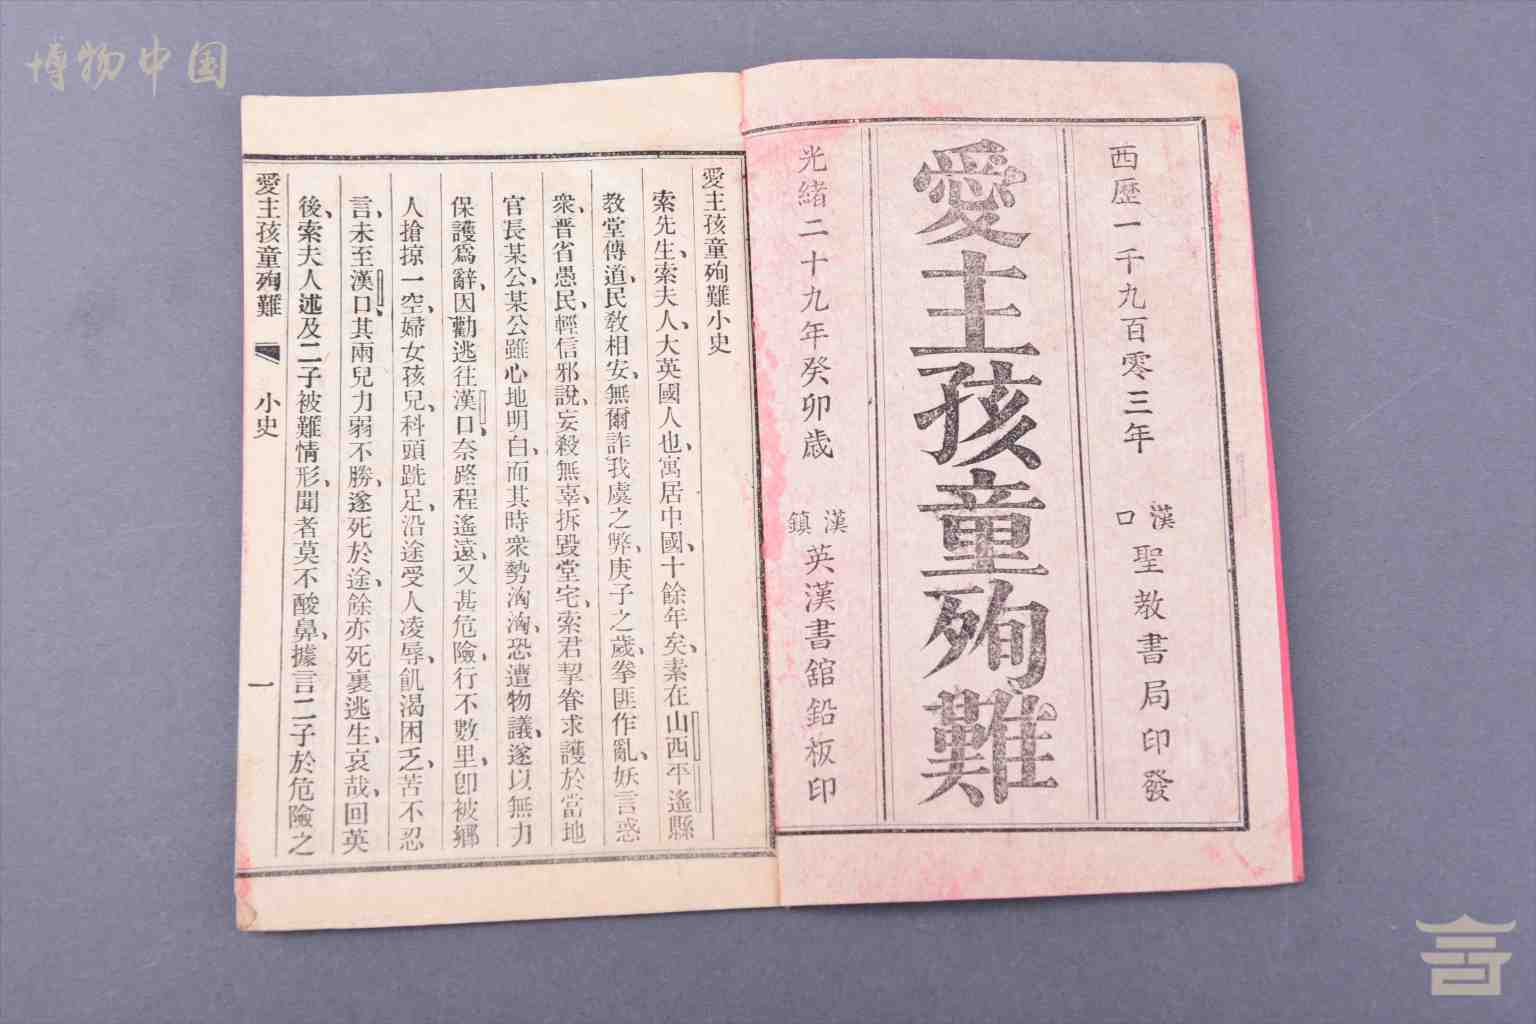 博物中国
西歷一千九百零三年
漢口聖教書局印發
愛主孩童殉難
光緒二十九年癸卯歲
漢鎮英漢書館鉛板印
愛主孩童殉難小史
索先生、索夫人、大英國人也、寓居中國、十餘年矣、素在山西平遙縣
教堂傳道、民教相安、無爾詐我虞之弊、庚子之歲、拳匪作亂、妖言惑
衆、晋省愚民、輕信邪說、妄殺無辜、拆毀堂宅、索君挈眷求護於當地
官長某公、某公雖心地明白、而其時衆勢洶洶、恐遭物議、遂以無力
保護爲辭、因勸逃往漢口、奈路程遙遠、又甚危險、行不數里、卽被鄉
人搶掠一空、婦女孩兒、科頭跣足、沿途受人凌辱、飢渴困乏、苦不忍
言、未至漢口、其兩兒力弱不勝、遂死於途、餘亦死裏逃生、哀哉、回英
後、索夫人述及二子被難情形、聞者莫不酸鼻、據言二子於危險之
愛主孩童殉難 小史 一